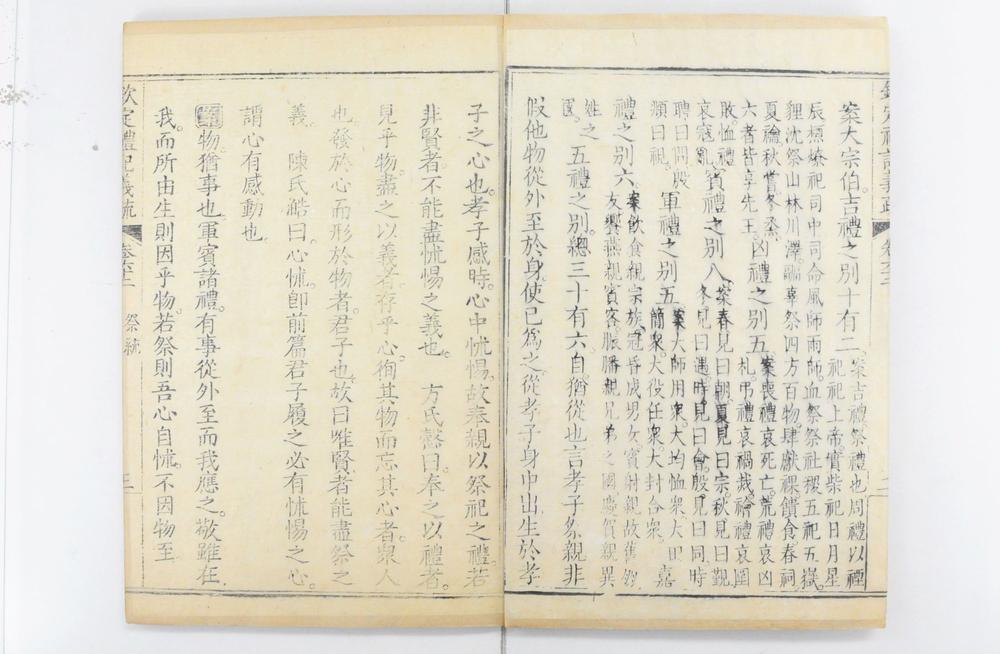 案大宗伯吉禮之別十有二案吉禮祭禮也周禮以禋
祀祀上帝實柴祀日月星
辰槱燎祀司中司命風師雨師血祭祭社稷五祀五嶽
貍沈祭山林川澤疈辜祭四方百物肆獻祼饋食春祠
夏禴秋嘗冬烝
六者皆享先王凶禮之別五案喪禮哀死亡荒禮哀凶
札弔禮哀禍烖禬禮哀圍
敗恤禮
哀寇亂賓禮之別八案春見曰朝夏見曰宗秋見曰覲
冬見曰遇時見曰會殷見曰同時
聘曰問殷
頫曰視軍禮之別五案大師用衆大均恤衆大田
簡衆大役任衆大封合衆嘉
禮之別六案飲食親宗族冠昏成男女賓射親故舊
友饗燕親賓客脤膰親兄弟之國慶賀親異
姓之
國五禮之別總三十有六自猶從也言孝子祭親非
假他物從外至於身使已為之從孝子身中出生於孝
子之心也。孝子感時。心中怵惕。故奉親以祭祀之禮。若
非賢者。不能盡怵惕之義也。 方氏慤曰。奉之以禮者。
見乎物。盡之以義者。存乎心。徇其物而忘其心者。衆人
也。發於心而形於物者。君子也。故曰唯賢者能盡祭之
義。 陳氏澔曰。心怵。即前篇君子履之必有怵惕之心。
謂心有感動也。
物。猶事也。軍賓諸禮。有事從外至而我應之。敬雖在
我。而所由生則因乎物。若祭則吾心自怵。不因物至
欽定禮記義疏
祭統 三